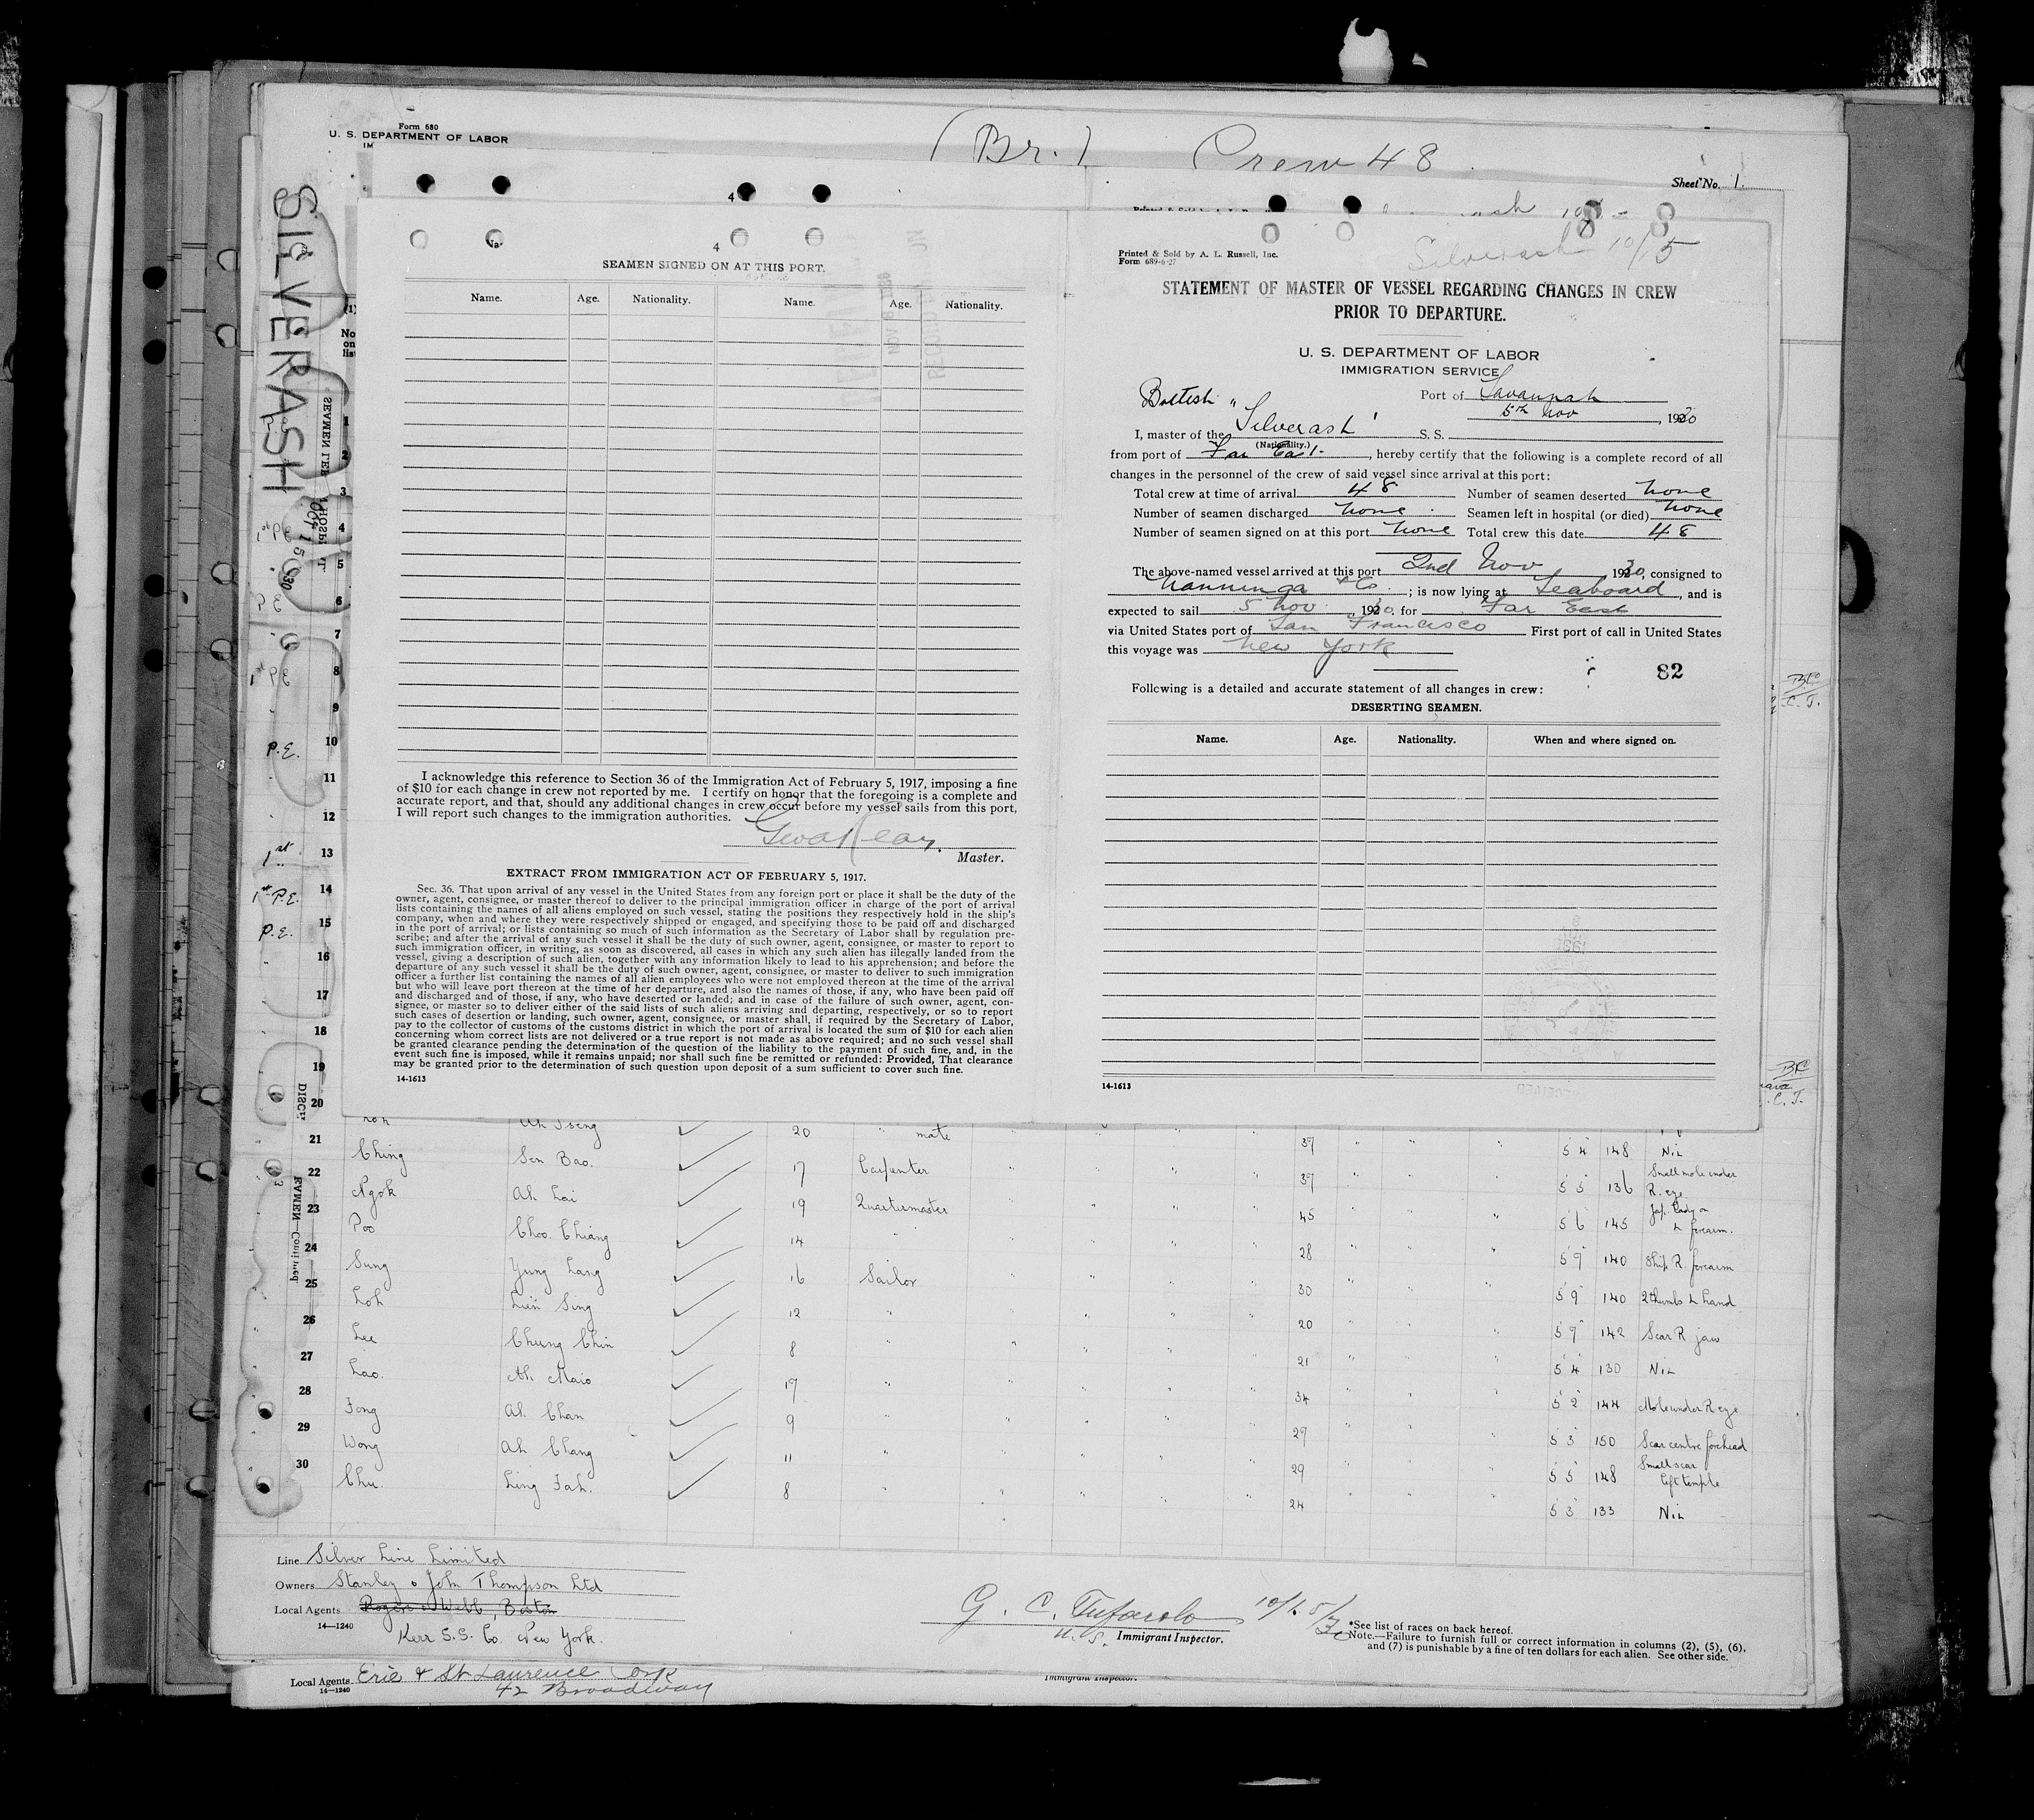 Form 680
U. S. DEPARTMENT OF LABOR
IM
(Br.) Crew 48
Sheet No. 1.
SILVERASH
4
SEAMEN SIGNED ON AT THIS PORT.
Name. Age. Nationality. Name. Age. Nationality.
I acknowledge this reference to Section 36 of the Immigration Act of February 5, 1917, imposing a fine
of $10 for each change in crew not reported by me. I certify on honor that the foregoing is a complete and
accurate report, and that, should any additional changes in crew occur before my vessel sails from this port,
I will report such changes to the immigration authorities.
Master.
EXTRACT FROM IMMIGRATION ACT OF FEBRUARY 5, 1917.
Sec. 36. That upon arrival of any vessel in the United States from any foreign port or place it shall be the duty of the
owner, agent, consignee, or master thereof to deliver to the principal immigration officer in charge of the port of arrival
lists containing the names of all aliens employed on such vessel, stating the positions they respectively hold in the ship's
company, when and where they were respectively shipped or engaged, and specifying those to be paid off and discharged
in the port of arrival; or lists containing so much of such information as the Secretary of Labor shall by regulation pre-
scribe; and after the arrival of any such vessel it shall be the duty of such owner, agent, consignee, or master to report to
such immigration officer, in writing, as soon as discovered, all cases in which any such alien has illegally landed from the
vessel, giving a description of such alien, together with any information likely to lead to his apprehension; and before the
departure of any such vessel it shall be the duty of such owner, agent, consignee, or master to deliver to such immigration
officer a further list containing the names of all alien employees who were not employed thereon at the time of the arrival
but who will leave port thereon at the time of her departure, and also the names of those, if any, who have been paid off
and discharged and of those, if any, who have deserted or landed; and in case of the failure of such owner, agent, con-
signee, or master so to deliver either of the said lists of such aliens arriving and departing, respectively, or so to report
such cases of desertion or landing, such owner, agent, consignee, or master shall, if required by the Secretary of Labor,
pay to the collector of customs of the customs district in which the port of arrival is located the sum of $10 for each alien
concerning whom correct lists are not delivered or a true report is not made as above required; and no such vessel shall
be granted clearance pending the determination of the question of the liability to the payment of such fine, and, in the
event such fine is imposed, while it remains unpaid; nor shall such fine be remitted or refunded: Provided, That clearance
may be granted prior to the determination of such question upon deposit of a sum sufficient to cover such fine.
14-1613
Printed & Sold by A. L. Russell, Inc.
Form 689-6-27
Silverash 10/15
STATEMENT OF MASTER OF VESSEL REGARDING CHANGES IN CREW
PRIOR TO DEPARTURE.
U. S. DEPARTMENT OF LABOR
IMMIGRATION SERVICE
Port of Savannah
5th Nov, 1930
I, master of the British "Silverash" S. S.
(Nationality.)
from port of Far East, hereby certify that the following is a complete record of all
changes in the personnel of the crew of said vessel since arrival at this port:
Total crew at time of arrival 48 Number of seamen deserted None
Number of seamen discharged None Seamen left in hospital (or died) None
Number of seamen signed on at this port None Total crew this date 48
The above-named vessel arrived at this port 2nd Nov 1930, consigned to
Nanninga & Co.; is now lying at Seaboard, and is
expected to sail 5 Nov, 1930 for Far East
via United States port of San Francisco First port of call in United States
this voyage was New York
82
Following is a detailed and accurate statement of all changes in crew:
DESERTING SEAMEN.
Name. Age. Nationality. When and where signed on.
14-1613
1
2
3
4
5
6
7
8
9
10 P.E.
11
12
13 1st
14 1st P.E.
15 P.E.
16
17
18
19
20
Loh Ah Tseng 20 " mate 39 5 4 148 Nil
21
Ching Sen Bao. 17 Carpenter 39 5 5 136 Small mole under R. eye
22
Ngok Ah Lai 19 Quartermaster 45 5 6 145 Jap. Lady on L forearm.
23
Poo Choo Chiang 14 " 28 5 9 140 Ship R. forearm
24
Sung Yung Lang 16 Sailor 30 5 9 140 2 thumbs L hand
25
Loh Lien Sing 12 " 20 5 9 142 Scar R jaw
26
Lee Chung Chin 8 " 21 5 4 130 Nil
27
Lao. Ah Maio 19 " 34 5 2 144 Mole under R eye
28
Fong Ah Chan 9 " 29 5 3 150 Scar centre forehead
29
Wong Ah Chang 11 " 29 5 5 148 Small scar left temple
30
Chu. Ling Fah. 8 " 24 5 3 133 Nil
Line Silver Line Limited
Owners Stanley & John Thompson Ltd
Local Agents Rogers & Webb, Boston
14—1240
Kerr S.S. Co. New York.
G. C. Tufarolo 10/15/30
U.S. Immigrant Inspector.
*See list of races on back hereof.
Note.—Failure to furnish full or correct information in columns (2), (5), (6),
and (7) is punishable by a fine of ten dollars for each alien. See other side.
Local Agents Erie & St Laurence Corp
14—1240
42 Broadway
Immigrant Inspector.